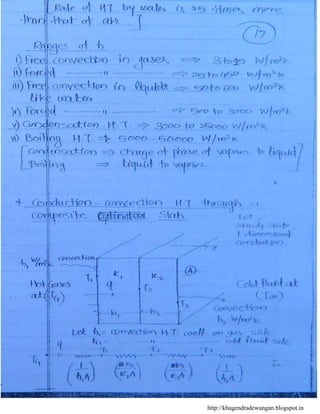 [ Rate of H.T. by water is 25 times more
than that of air. ]
17
Ranges of h
i) Free convection in gases ⇒ 3 to 25 W/m²K
ii) Forced —— 11 —— ⇒ 25 to 450 W/m²K
iii) Free convection in liquids ⇒ 50 to 600 W/m²K
like water
iv) Forced —— 11 —— ⇒ 500 to 3000 W/m²K
v) Condensation H.T. ⇒ 3000 to 25000 W/m²K
vi) Boiling H.T. ⇒ 5000 - 50000 W/m²K
[ Condensation ⇒ change of phase of vapour to liquid
Boiling ⇒ liquid to vapour ]
* Conduction - convection H.T through a
composite Slab
Let
Steady State
1 dimensional
conduction
h₁ W/m²K convection
T₁ K₁ K₂ A
Hot Gases q T₂ Cold fluid at
at (TG) T₃ (T∞)
convection
b₁ b₂ h₂ W/m²K
Let h₁ = convection H.T. coeff on gas side
q h₂ = —— 11 —— cold fluid side
TG T₁ T₂ T₃ T∞
(1/h₁A) (b₁/K₁A) (b₂/K₂A) (1/h₂A)
http://khagendradewangan.blogspot.in